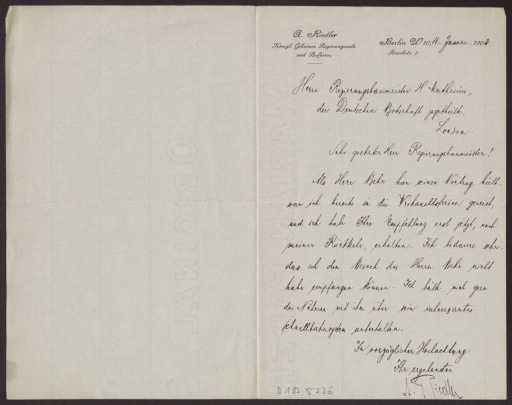 A. Riedler
Königl. Geheimer Regierungsrath
und Professor.
Berlin W 10, 14. Januar 1904
Herrn Regierungsbaumeister H. Muthesius,
der Deutschen Botschaft zugetheilt.
London
Sehr geehrter Herr Regierungsbaumeister!
Als Herr Behr hier seinen Vortrag hielt,
war ich bereits in die Weihnachtsferien gereist,
und ich habe Ihre Empfehlung erst jetzt, nach
meiner Rückkehr, erhalten. Ich bedaure sehr,
dass ich den Besuch des Herrn Behr nicht
habe empfangen können. Ich hätte mich gern
des Näheren mit ihm über sein interessantes
Schnellbahnsystem unterhalten.
In vorzüglicher Hochachtung
Ihr ergebenster
A. Riedler